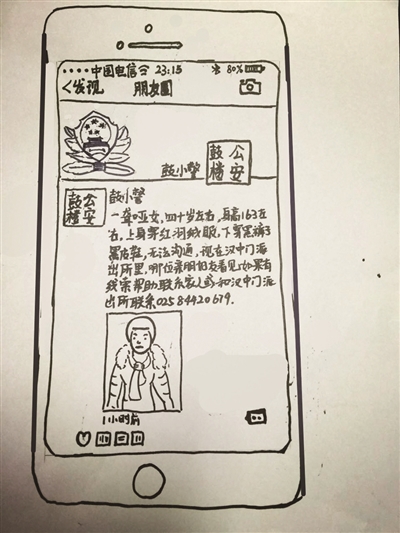 中国电信 23:15 80%
<发现 朋友圈
鼓小警
鼓公
楼安
鼓公
楼安
鼓小警
一聋哑女,四十岁左右,身高163左
右,上身穿红羽绒服,下穿黑裤子
黑皮鞋,无法沟通,现在汉中门派
出所里,哪位亲朋好友看见,如果有
线索帮助联系家人或和汉中门派
出所联系02584420679.
1小时前